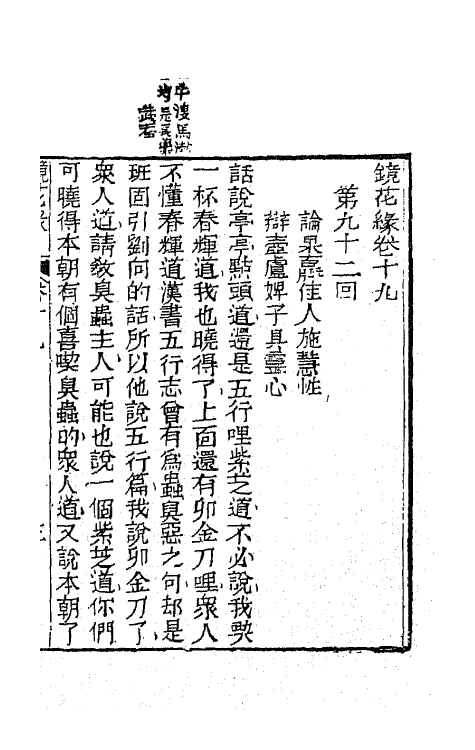 鏡花緣卷十九
第九十二回
論果贏佳人施慧性
辯壺盧婢子具靈心
話說亭亭點頭道還是五行哩紫芝道不必說我喫
一杯春輝道我也曉得了上面還有卯金刀哩眾人
不懂春輝道漢書五行志曾有為蟲臭惡之句却是
班固引劉向的話所以他說五行篇我說卯金刀了
眾人道請教臭蟲主人可能也說一個紫芝道你們
可曉得本朝有個喜喫臭蟲的眾人道又說本朝了
鏡花緣
卷十九